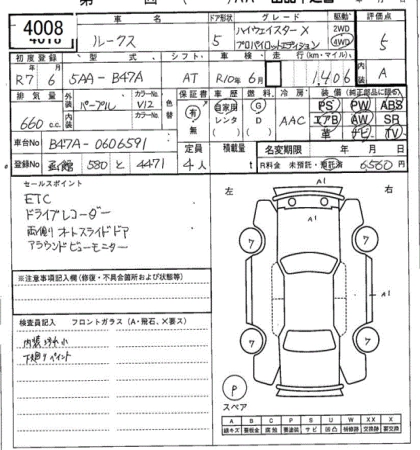 4008
車名
ルークス
ドア形状
5
グレード
ハイウェイスターX
プロパイロットエディション
駆動
2WD
4WD
評価点
5
初度登録
R7年6月
型式
5AA-B47A
シフト
AT
車検
R10年6月
走行(km・マイル)
1,406
内装
A
排気量
660 c.c.
外装
パープル
カラーNo.
V12
色替
保証書
有
無
車歴
自家用
レンタ
燃料
G
D
冷房
AAC
装備(純正部品に限る)
PS PW ABS
エアB AW SR
革 ナビ TV
車台No
B47A-0606591
定員
4人
積載量
t
名変期限
年 月 日
登録No
函館 580 と 4471
R料金 未預託・預託済
6560円
セールスポイント
ETC
ドライブレコーダー
両側オートスライドドア
アラウンドビューモニター
※注意事項記入欄(修復・不具合箇所および状態等)
検査員記入
フロントガラス(A・飛石、×要ス)
左
右
A1
7
7
A1
7
7
A1
P
スペア
A B C P S U W X XX
線キズ 要板金 腐食 要塗装 サビ 凹凸 補修跡 要交換 交換跡